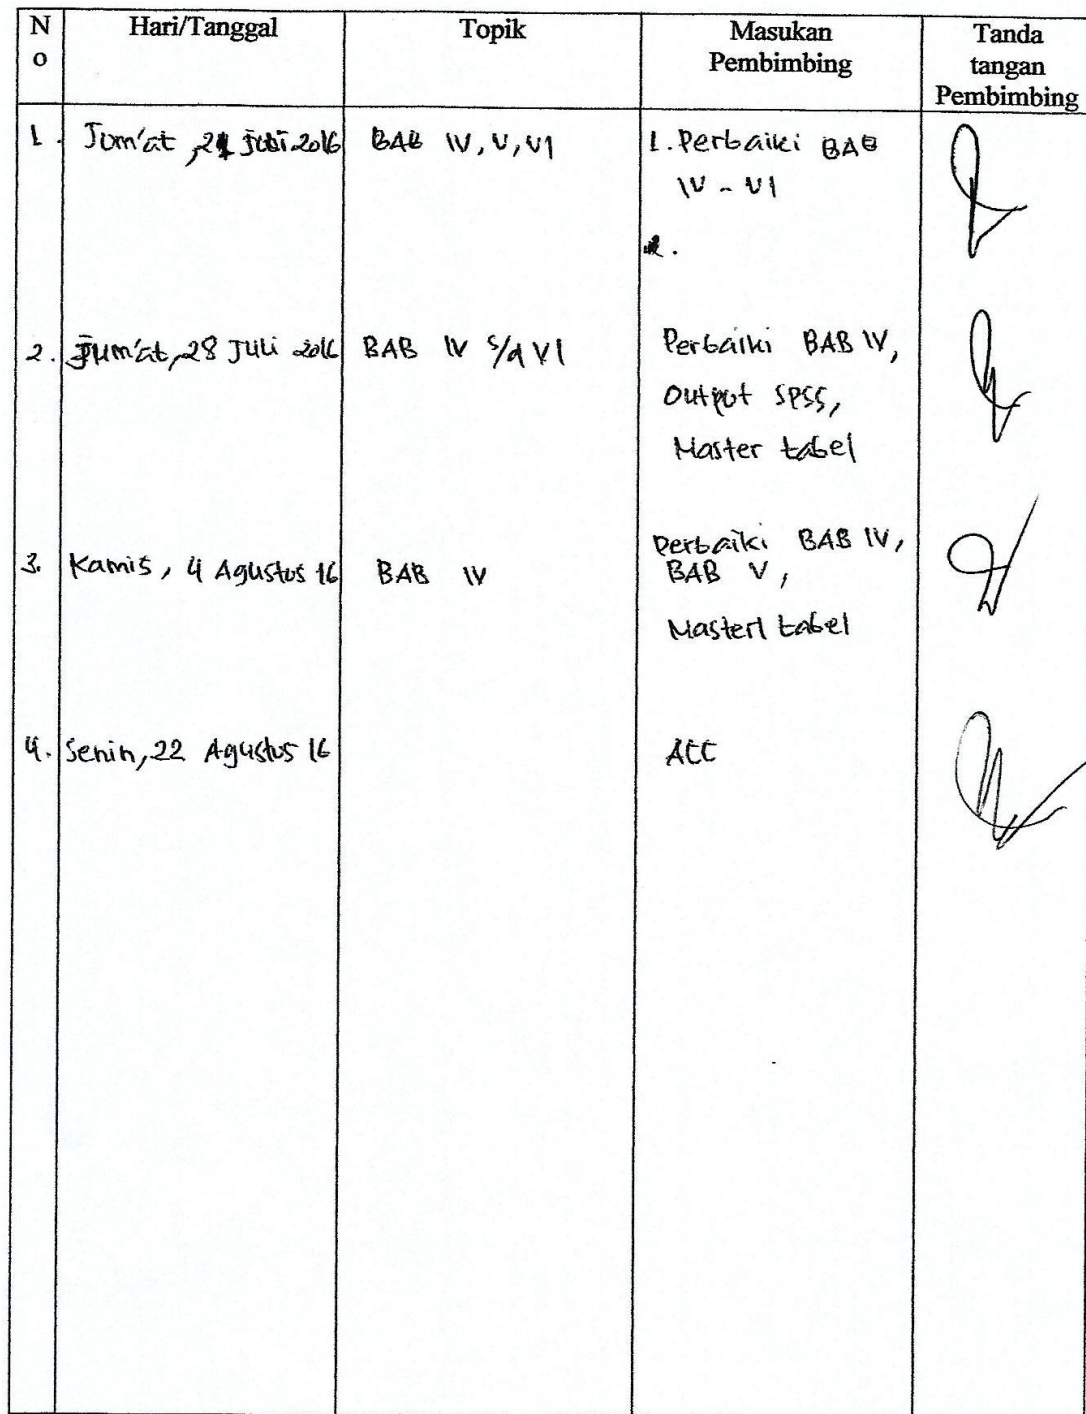 N
o
Hari/Tanggal
Topik
Masukan
Pembimbing
Tanda
tangan
Pembimbing
1. Jum'at, 21 Juli 2016
BAB IV, V, VI
1. Perbaiki BAB
IV - VI
2. Jum'at, 28 Juli 2016
BAB IV s/d VI
Perbaiki BAB IV,
Output SPSS,
Master tabel
3. Kamis, 4 Agustus 16
BAB IV
Perbaiki BAB IV,
BAB V,
Master tabel
4. Senin, 22 Agustus 16
ACC